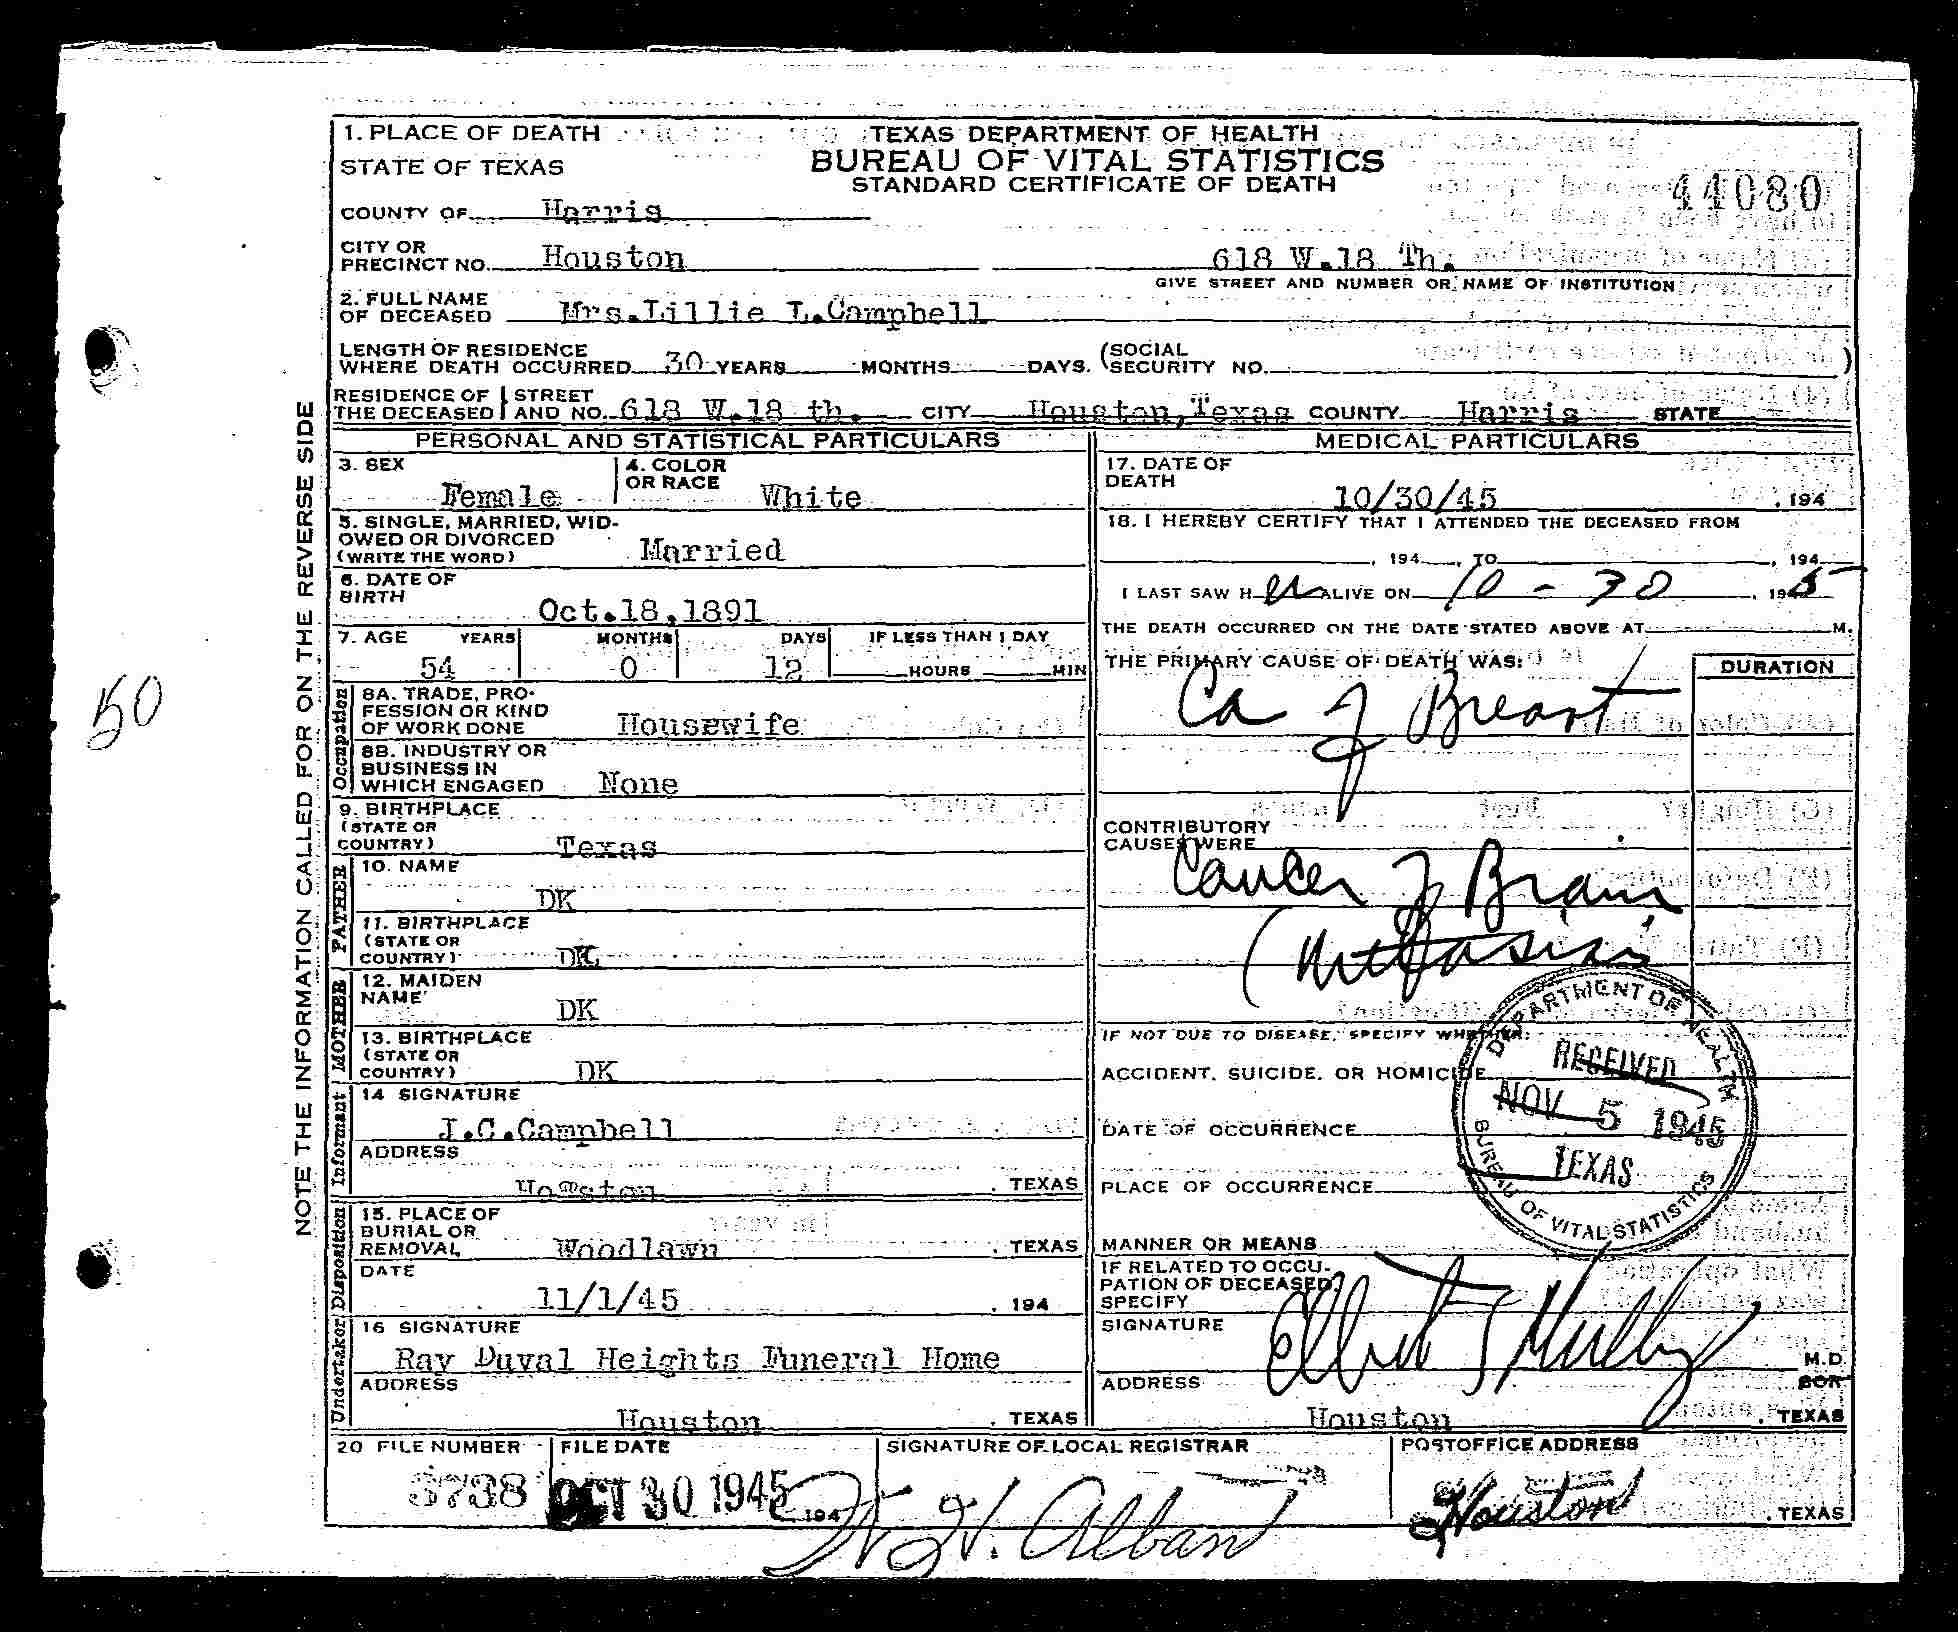 1. PLACE OF DEATH
STATE OF TEXAS
TEXAS DEPARTMENT OF HEALTH
BUREAU OF VITAL STATISTICS
STANDARD CERTIFICATE OF DEATH
44080
COUNTY OF Harris
CITY OR PRECINCT NO. Houston 618 W.18 Th.
GIVE STREET AND NUMBER OR NAME OF INSTITUTION
2. FULL NAME OF DECEASED Mrs.Lillie L.Campbell
LENGTH OF RESIDENCE WHERE DEATH OCCURRED 30 YEARS MONTHS DAYS. (SOCIAL SECURITY NO. )
RESIDENCE OF THE DECEASED STREET AND NO. 618 W.18 th. CITY Houston, Texas COUNTY Harris STATE
NOTE THE INFORMATION CALLED FOR ON THE REVERSE SIDE
50
PERSONAL AND STATISTICAL PARTICULARS
3. SEX Female
4. COLOR OR RACE White
5. SINGLE, MARRIED, WIDOWED OR DIVORCED (WRITE THE WORD) Married
6. DATE OF BIRTH Oct.18,1891
7. AGE YEARS MONTHS DAYS IF LESS THAN 1 DAY
54 0 12 HOURS MIN
Occupation
8A. TRADE, PROFESSION OR KIND OF WORK DONE Housewife
8B. INDUSTRY OR BUSINESS IN WHICH ENGAGED None
9. BIRTHPLACE (STATE OR COUNTRY) Texas
FATHER
10. NAME DK
11. BIRTHPLACE (STATE OR COUNTRY) DK
MOTHER
12. MAIDEN NAME DK
13. BIRTHPLACE (STATE OR COUNTRY) DK
Informant
14 SIGNATURE J.C.Campbell
ADDRESS Houston , TEXAS
Disposition
15. PLACE OF BURIAL OR REMOVAL Woodlawn , TEXAS
DATE 11/1/45 , 194
Undertaker
16 SIGNATURE Ray Duval Heights Funeral Home
ADDRESS Houston , TEXAS
MEDICAL PARTICULARS
17. DATE OF DEATH 10/30/45 , 194
18. I HEREBY CERTIFY THAT I ATTENDED THE DECEASED FROM
, 194 , TO , 194
I LAST SAW H er ALIVE ON 10 - 30 , 1945
THE DEATH OCCURRED ON THE DATE STATED ABOVE AT M.
THE PRIMARY CAUSE OF DEATH WAS: DURATION
Ca of Breast
CONTRIBUTORY CAUSES WERE
Cancer of Brain
IF NOT DUE TO DISEASE, SPECIFY WHETHER:
ACCIDENT, SUICIDE, OR HOMICIDE
DATE OF OCCURRENCE
PLACE OF OCCURRENCE
MANNER OR MEANS
DEPARTMENT OF HEALTH
RECEIVED
NOV 5 1945
TEXAS
BUREAU OF VITAL STATISTICS
IF RELATED TO OCCUPATION OF DECEASED, SPECIFY
SIGNATURE M.D.
ADDRESS Houston , TEXAS
20 FILE NUMBER 3738
FILE DATE OCT 30 1945 , 194
SIGNATURE OF LOCAL REGISTRAR W. H. Alban
POSTOFFICE ADDRESS Houston , TEXAS